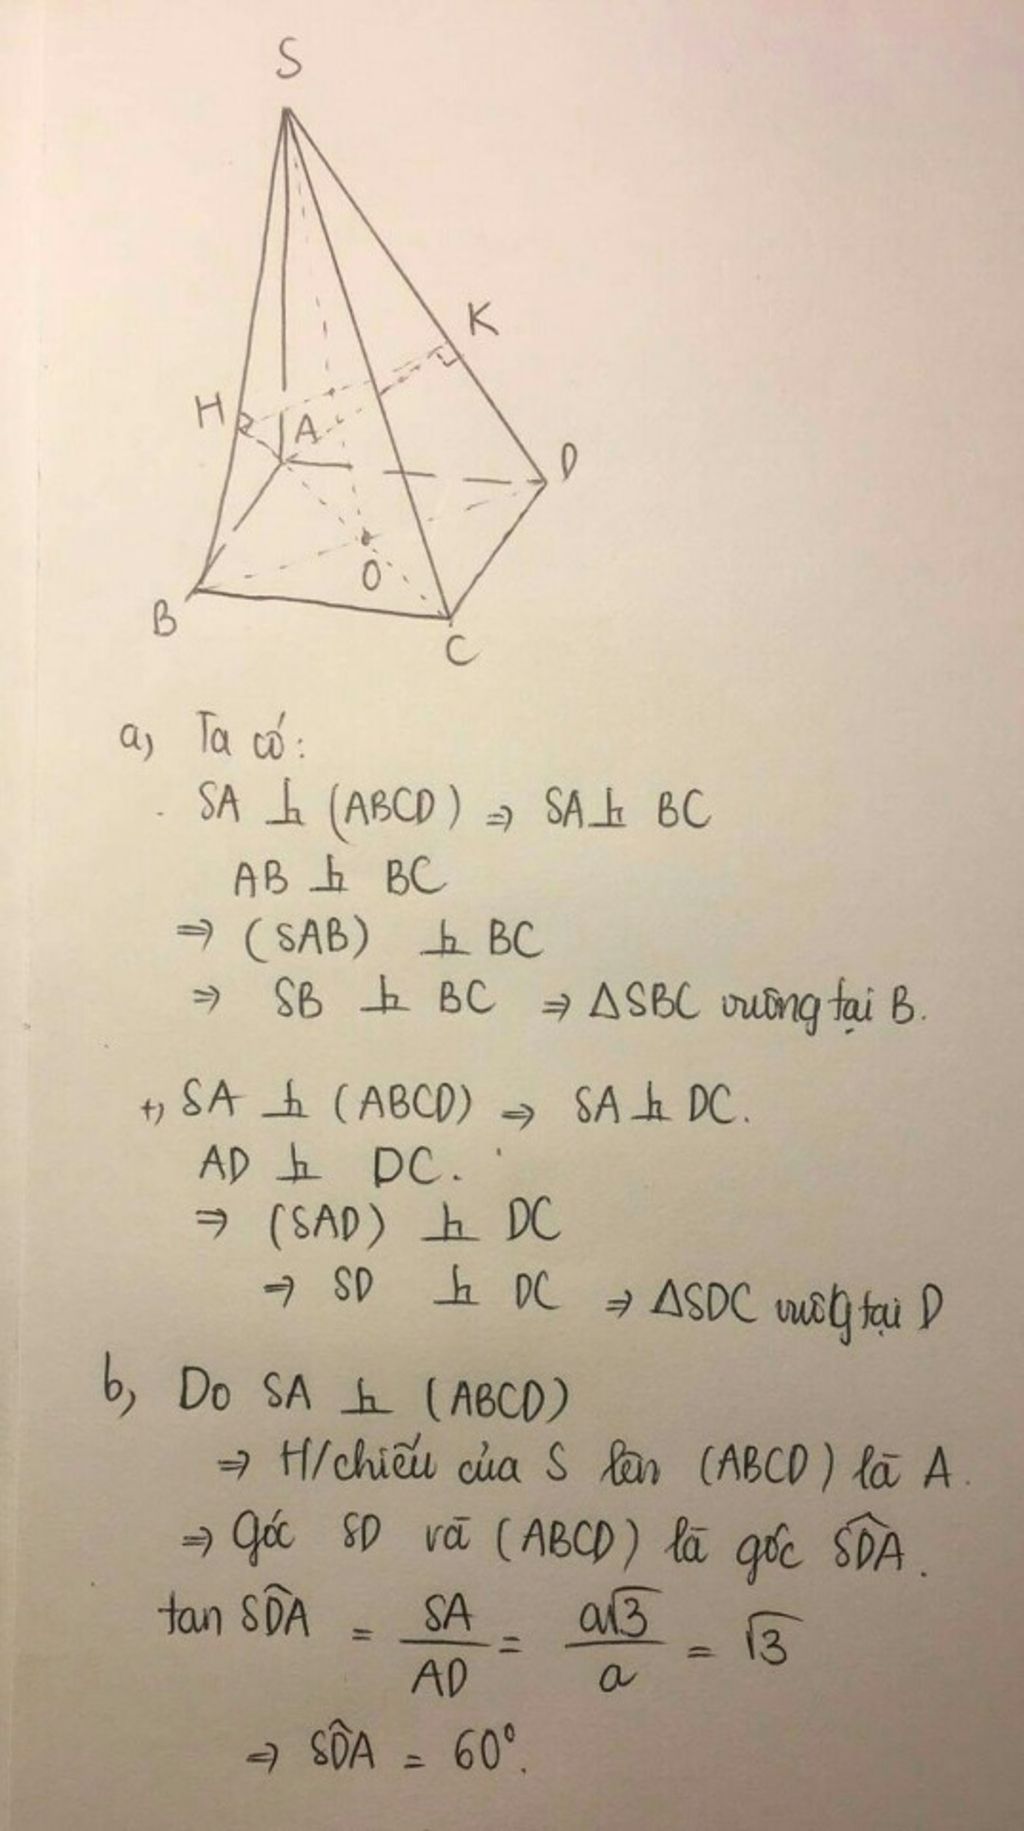 S
K
H
A
D
O
B
C
a) Ta có:
SA ⊥ (ABCD) ⇒ SA ⊥ BC
AB ⊥ BC
⇒ (SAB) ⊥ BC
⇒ SB ⊥ BC ⇒ ΔSBC vuông tại B.
+) SA ⊥ (ABCD) ⇒ SA ⊥ DC.
AD ⊥ DC.
⇒ (SAD) ⊥ DC
⇒ SD ⊥ DC ⇒ ΔSDC vuông tại D
b) Do SA ⊥ (ABCD)
⇒ H/chiếu của S lên (ABCD) là A.
⇒ Góc SD và (ABCD) là góc SD̂A.
tan SD̂A = SA/AD = a√3/a = √3
⇒ SD̂A = 60°.